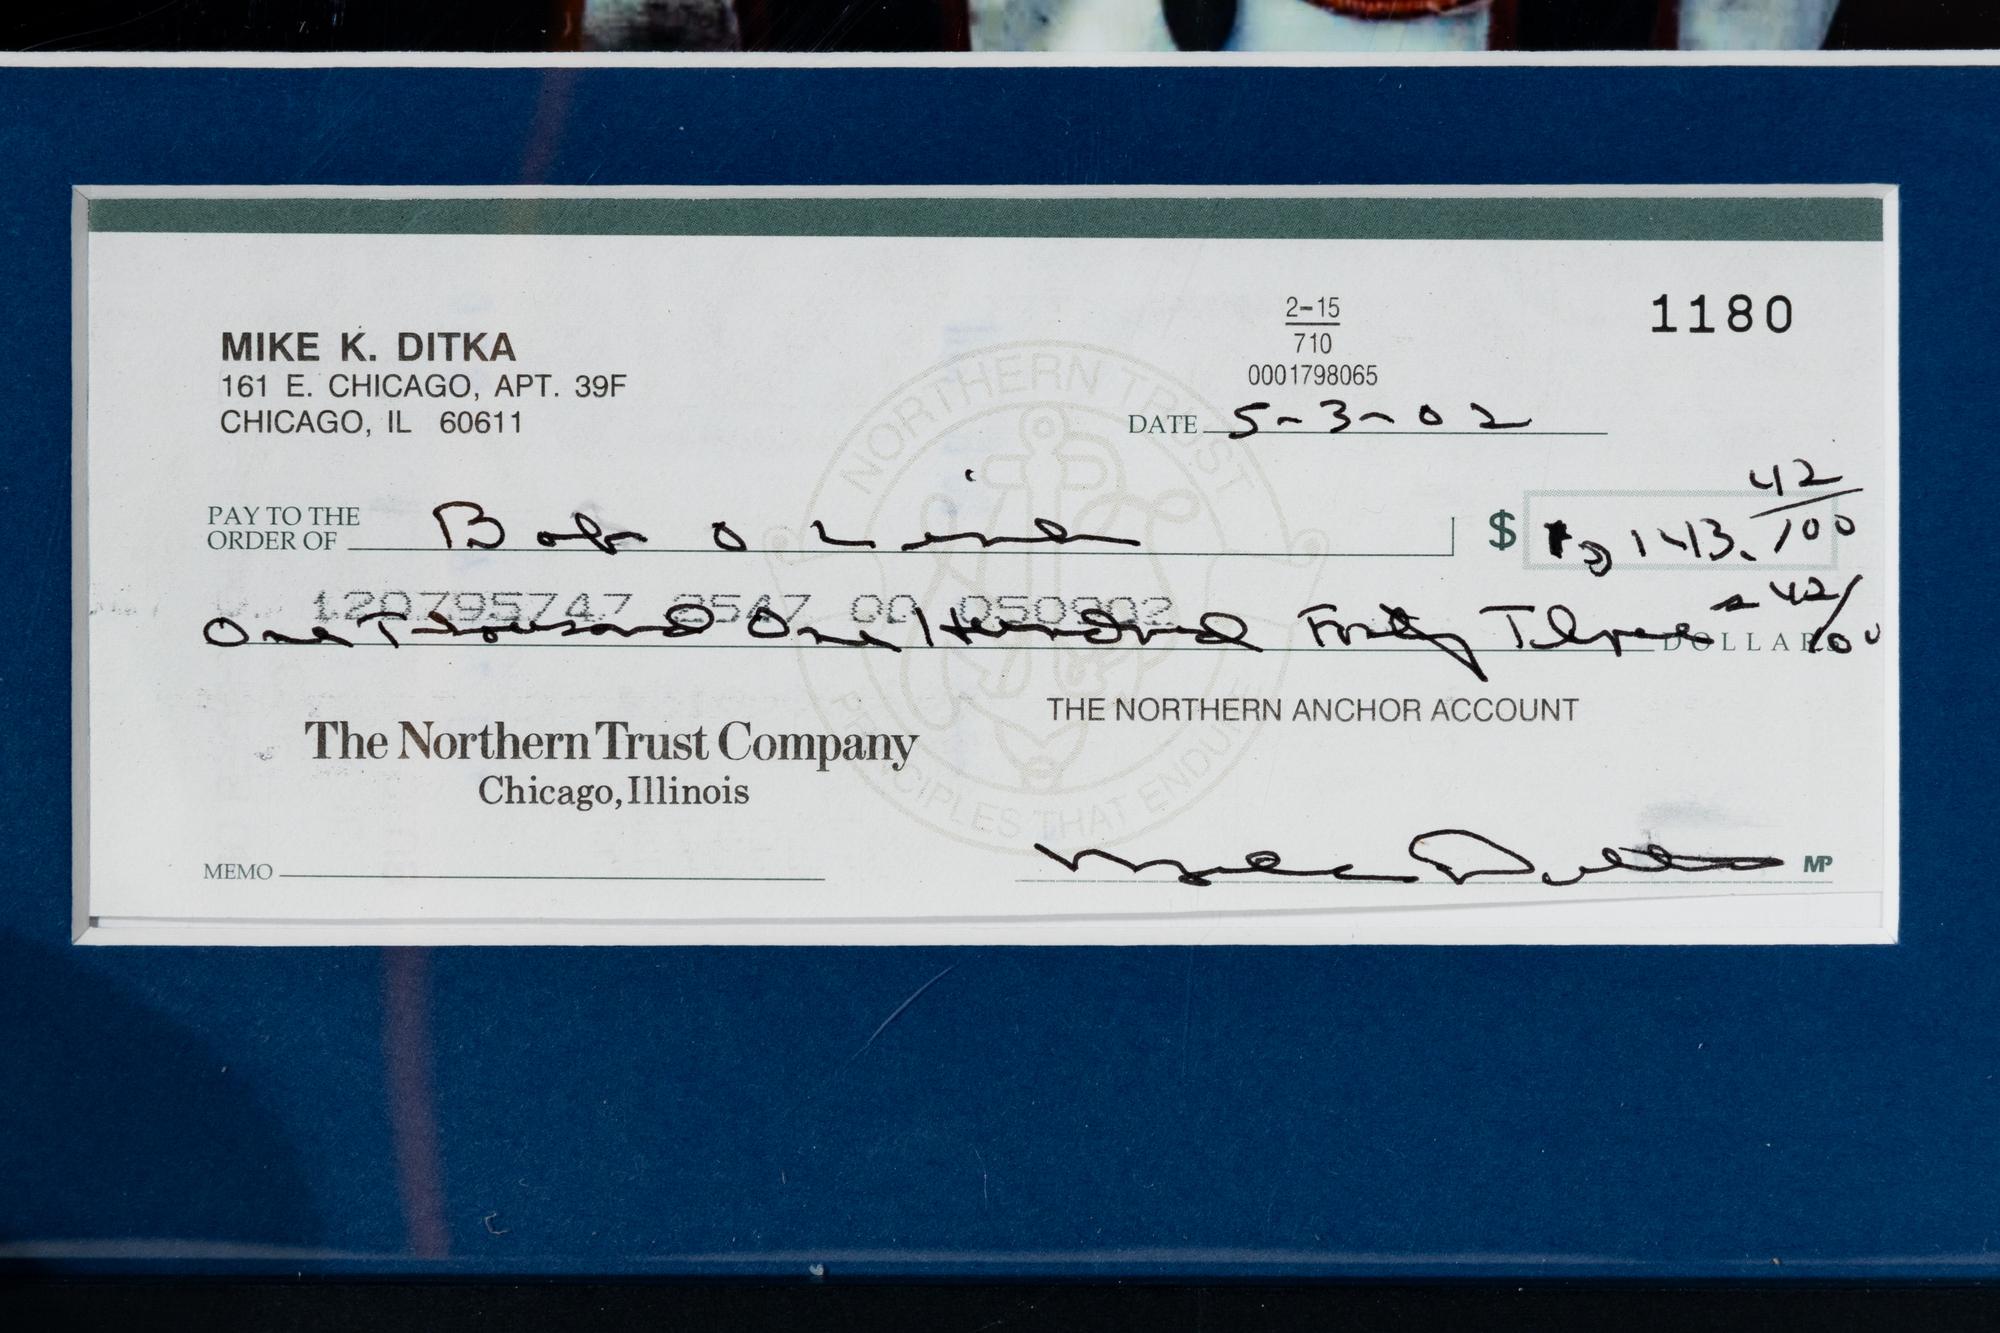 1180
2-15
710
0001798065
MIKE K. DITKA
161 E. CHICAGO, APT. 39F
CHICAGO, IL 60611
DATE 5-3-02
NORTHERN TRUST
PAY TO THE
ORDER OF Bob
$ 1143. 42/100
120795747 8547 00 050902
One Thousand One Hundred Forty Three & 42/100
DOLLAR
THE NORTHERN ANCHOR ACCOUNT
The Northern Trust Company
Chicago, Illinois
PRINCIPLES THAT ENDURE
MEMO
Mike Ditka MP